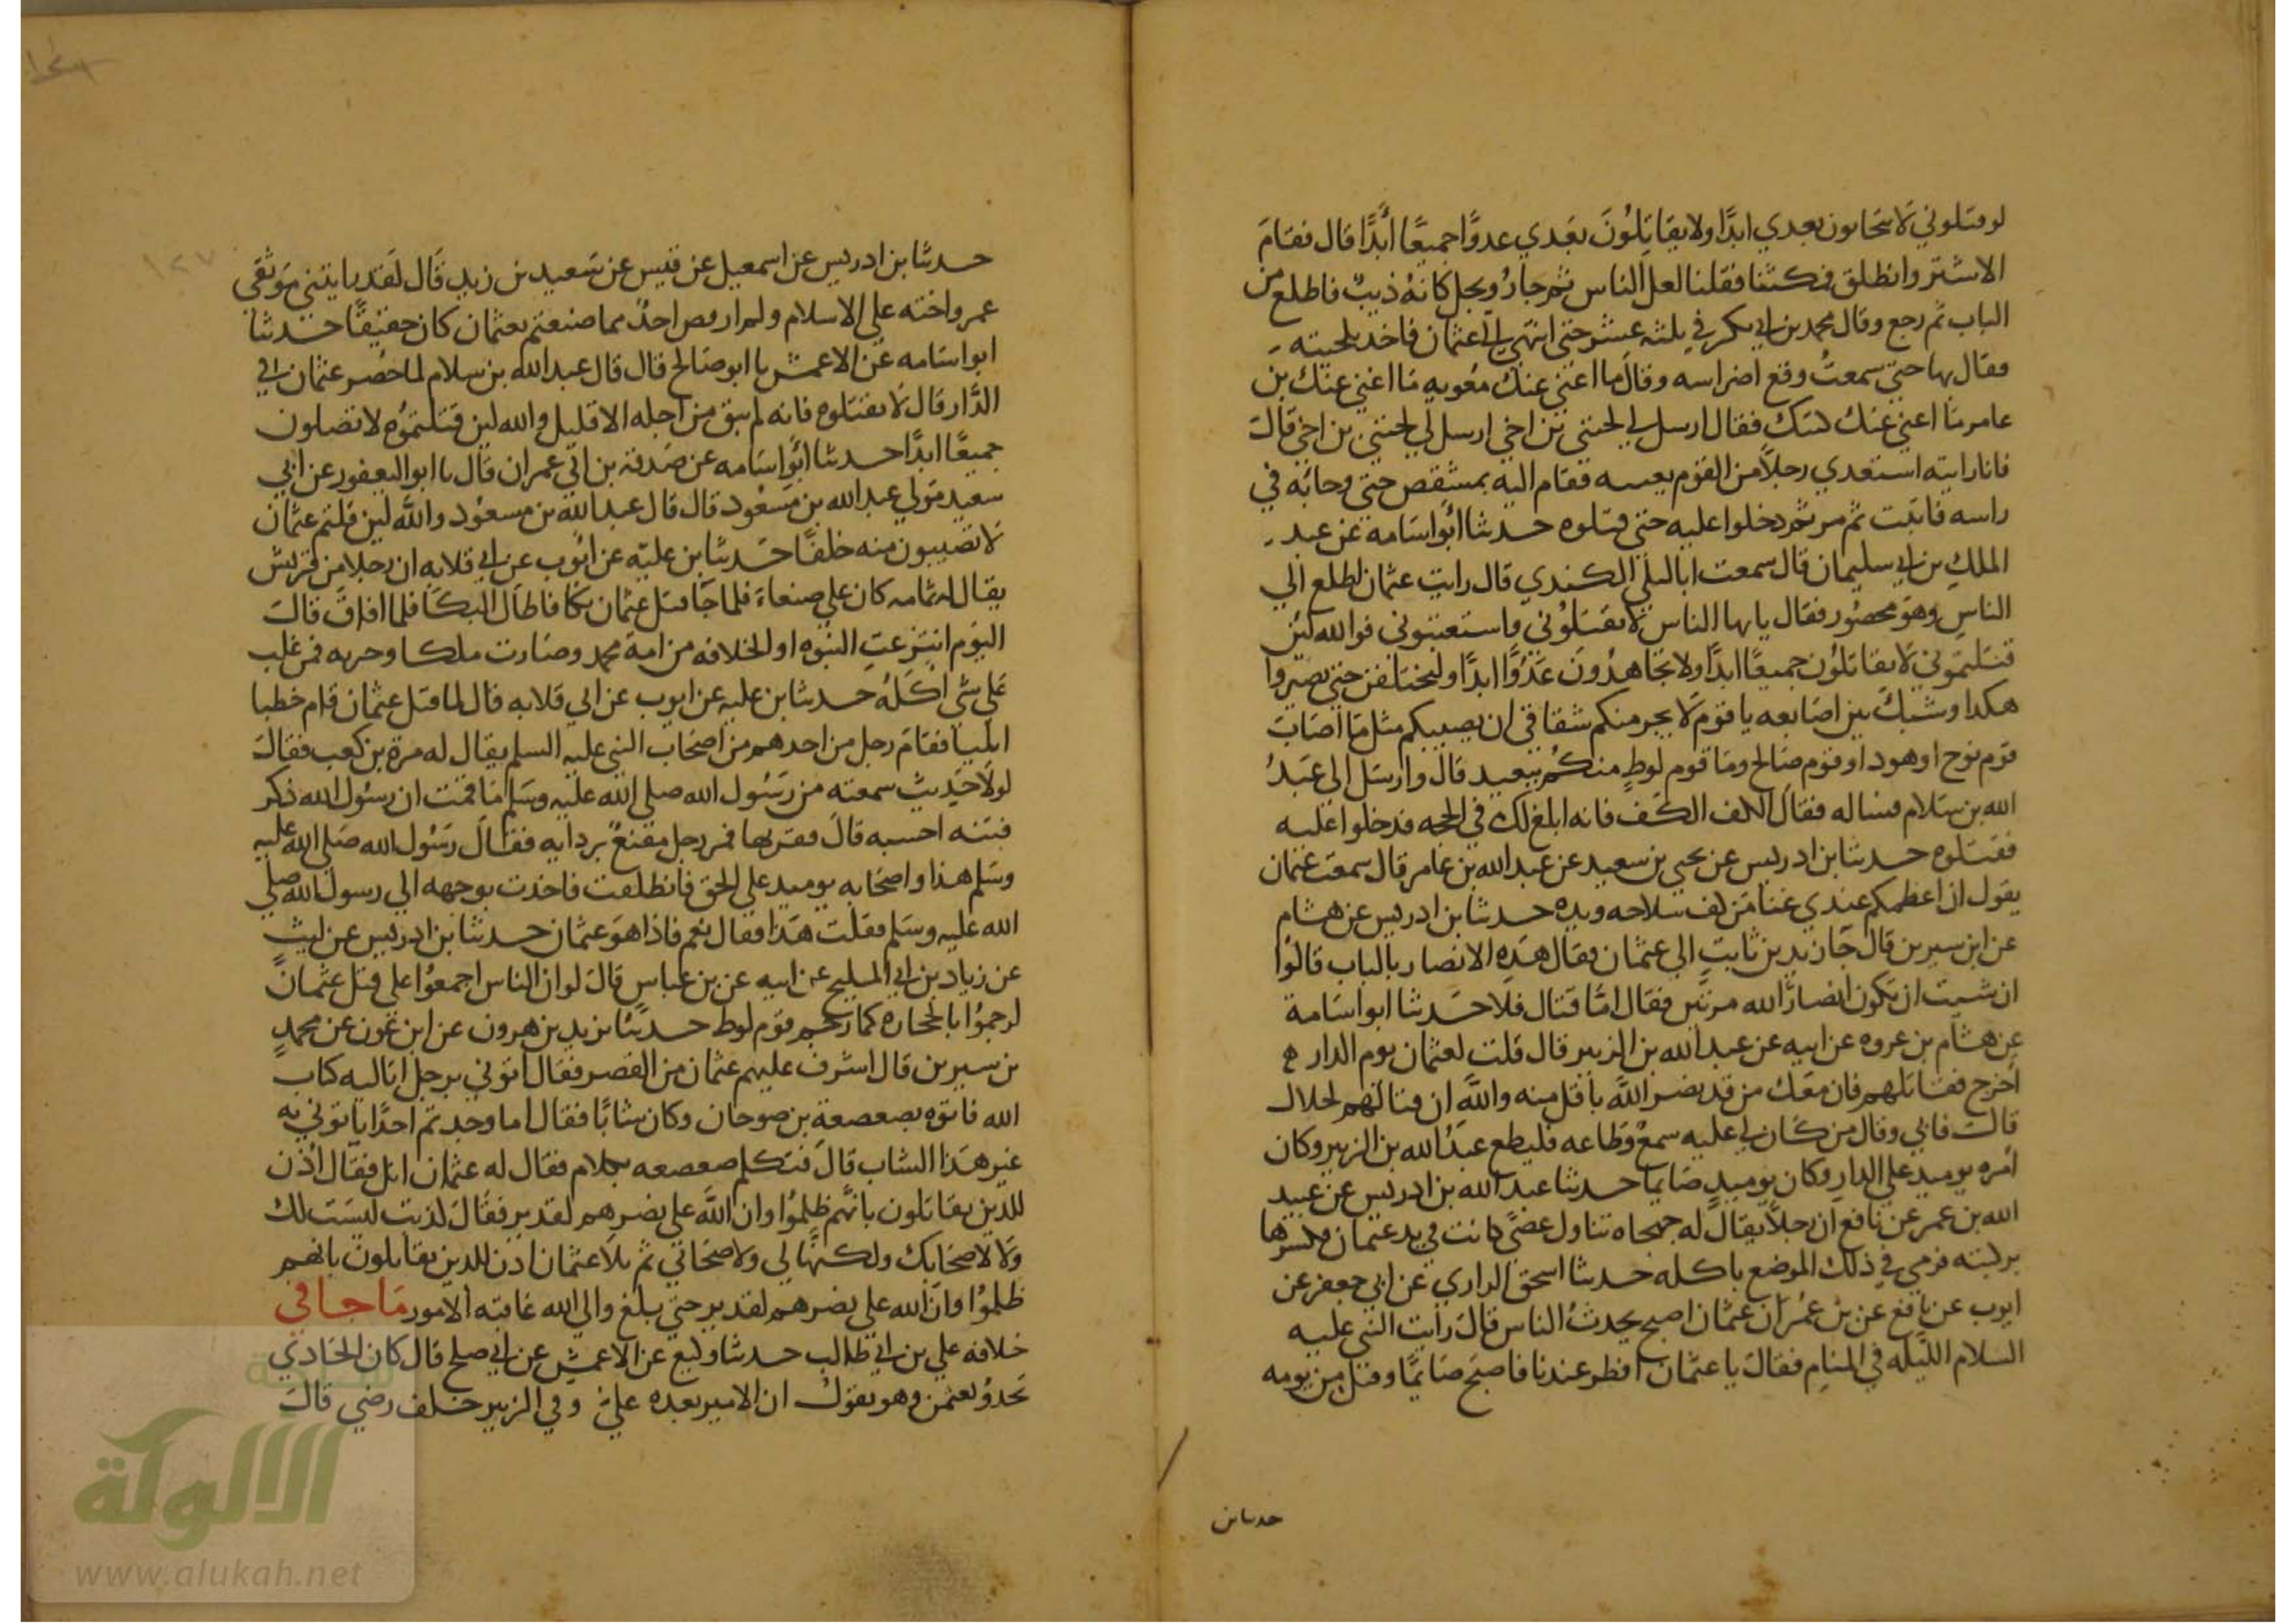 لو قتلوني لا يتحابون بعدي ابدًا ولا يقاتِلُونَ بَعْدي عدوًّا جميعًا أبدًا قال فقامَ
الاشتر وانطلق فمكثنا فقلنا لعل الناس ثم جاءَ رُويجل كانهُ ذيبٌ فاطلع من
الباب ثم رجع وقال محمد بن ابي بكر في ثلثه عشر حتى انتهي الي عثمان فاخذ بلحيته
فقال بها حتي سمعتُ وقع اضراسه وقال ما اغني عنك معويه ما اغني عنك بن
عامر ما اغني عنك كتبك فقال ارسل لي لحيتي بن اخي ارسل لي لحيتي بن اخي قالَ
فانا رايته استعدي رجلاً من القوم بعينه فقام اليه بمشقص حتي وجا به في
راسه فاثبت ثم مر ثم دخلوا عليه حتى قتلوه حدثنا أبو اسَامة عن عبد
الملك بن ابي سليمان قال سمعت ابا ليلي الكندي قال رايت عثمان اطلع الي
الناس وهو محصُور فقال يا يها الناس لا تقتلوني واستعتبوني فوالله لئن
قتلتموني لا تقاتلون جميعًا ابدًا ولا تجاهدُونَ عَدُوًّا ابدًا ولتختلفن حتى تصيروا
هكذا وشبك بين اصَابعه يا قوم لا يجرمنكم شقاقي ان يصيبكم مثل مَا اصَابَ
قوم نوح او هود او قوم صَالح ومَا قوم لوطٍ منكُم ببعيد قال وارسَل الي عَبدُ
الله بن سَلام فساله فقال الكف الكَف فانه ابلغ لك في الحجه فدخلوا عليه
فقتلوه حدثنا بن ادريس عن يحيي بن سعيد عن عبد الله بن عامر قال سمعت عثمان
يقول ان اعظمكم عندي غنا من كف سلاحه ويده حدثنا بن ادريس عن هشام
عن ابن سيرين قال جَا زيد بن ثابتِ الي عثمان فقال هَذِه الانصار بالباب قالوُا
ان شيت ان نكون انصَارَ الله مرتين فقال امَّا قتال فلا حدثنا ابو اسَامة
عن هشام بن عروه عن ابيه عن عبد الله بن الزبير قال قلت لعثمان يوم الدار
اخرج فقاتلهم فان معَك من قد نصَر اللهُ باقل منه واللهِ ان قتالهم لحلال
قالَ فابي وقال من كان لي عليه سمعٌ وَطاعه فليطع عبَدُ الله بن الزبير وكان
امره يوميد علي الدارِ وكان يوميدٍ صَايما حدثنا عبد الله بن ادريس عن عبيد
الله بن عمر عن نافع ان رجلاً يقال له جهجاه تناول عصًي كانت في يد عثمان فكسرها
بركبته فرمي في ذلك الموضع باكله حدثنا اسحق الرازي عن ابي جعفر عن
ايوب عن نافع عن بن عُمر ان عثمان اصبح يحدث الناس قالَ رايت النبي عليه
السلام الليله في المنام فقالَ يا عثمان افطر عندنا فاصبح صَايمًا وقتل من يومه
حدثنا بن
حدثنا بن ادريس عن اسمعيل عن قيس عن سَعيد بن زيد قَال لَقد رايتني مَوثقي
عمر واخته علي الاسلام ولو ارفض احدٌ مما صنعتم بعثمان كان حقيقًا حدثنا
ابو اسَامه عن الاعمش نا ابو صَالح قال قال عبد الله بن سلام لما حُصر عثمان في
الدَّار قال لا تقتلوه فانه لم يبق من اجله الا قليل والله لين قتلتموُه لا تصلون
جميعًا ابدًا حدثنا ابُو اسَامه عن صَدقة بن ابي عمران قَال نا ابو اليعفور عن ابي
سعيد مَولي عبد الله بن مَسعُود قال قال عبد الله بن مسعُود واللهِ لين قتلتم عثمانَ
لا تصيبون منه خلفًا حَدثنا بن عليّه عن ايُوب عن ابي قلابه ان رجلا من قريش
يقال له ثمامه كان علي صنعاءَ فلما جَا قتل عثمان بَكا فاطال البكا فلما افاق قالَ
اليَوم انتزعتِ النبوه او الخلافه من امة محمد وصَارت ملكا وجريه فمن غلب
عَلي شي اكَلهُ حدثنا بن عليه عن ايوب عن ابي قلابه قال لما قتل عثمان قام خطبا
ايليا فقامَ رجل من احدهم من اصحَاب النبي عليه السلم يقال له مرة بن كعب فقالَ
لولا حَديث سمعته من رَسُول الله صلى الله عليه وسَلم ما قمت ان رسُول الله ذكر
فتنه احسبه قالَ فقربها فمر رجل مقنعٌ بردايه فقالَ رَسُول الله صَلى الله عليه
وسَلم هذا واصحَابه يوميد علي الحق فانطلقت فاخذت بوجهه الي رسول الله صلى
الله عليه وسَلم فقلت هَذا فقال نعم فاذا هوَ عثمان حدثنا بن ادريس عن ليثٍ
عن زياد بن ابي المليح عن ابيه عن بن عباسٍ قالَ لو ان الناس اجمعُوا علي قتل عثمان
لرجموُا بالحجاره كما رجم قوم لوط حدثنا يزيد بن هرون عن ابن عون عن محمدٍ
بن سيرين قال اشرف عليهم عثمان من القصر فقال ائتوني برجل اتاليه كتاب
الله فاتوه بصعصعة بن صوحان وكان شابًا فقال اما وجدتم احدًا ياتوني به
غير هَذا الشاب قالَ فتكلم صعصعه بكلام فقال له عثمان اتل فقال أذن
للذين يقاتلون بانهم ظلِموُا وان اللهَ علي نصرهم لقدير فقالَ كذبت ليسَت لك
وَلا لاصحَابك ولكنهَا لي ولاصحَابي ثم تلا عثمان اذن للذين يقاتلون بانهم
ظلموُا وان الله علي نصرهم لقدير حتى بلغ والي الله عاقبه الامور مَا جا في
خلافه علي بن ابي طالب حدثنا وكيع عن الاعمش عن ابي صلح قال كان الحَادي
يَحدوُ بعثمن وهو يقول ان الامير بعده عليٌ وفي الزبير خلف رضي قالَ
الألوكة
www.alukah.net